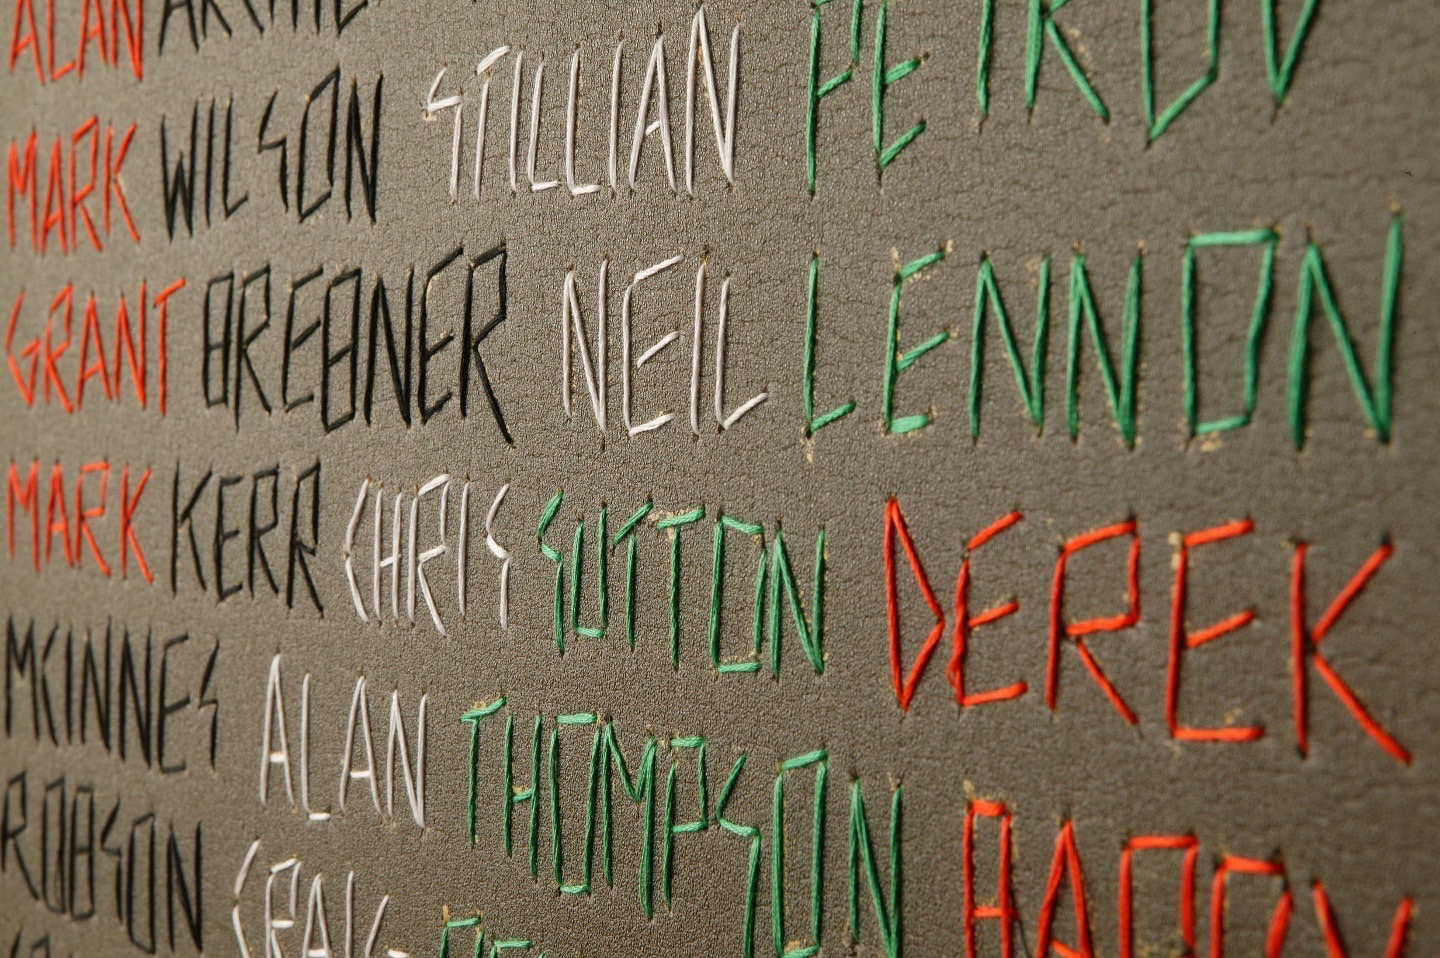 ALAN
MARK WILSON STILLIAN PETROV
GRANT BREBNER NEIL LENNON
MARK KERR CHRIS SUTTON DEREK
MCINNES ALAN THOMPSON BARRY
ROBSON CRAIG